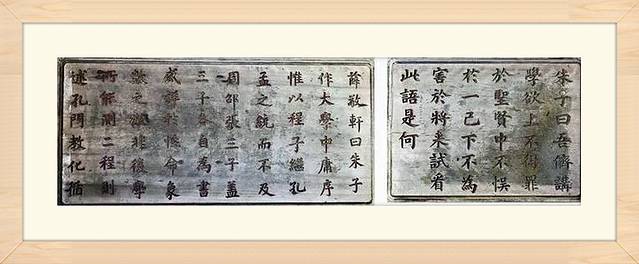 朱子曰吾儕講
學欲上不得罪
於聖賢中不悞
於一己下不為
害於將來試看
此語是何
薛敬軒曰朱子
作大學中庸序
惟以程子繼孔
孟之統而不及
周邵張三子蓋
三子各自為書
或詳於性命象
數之微非後學
所能測二程則
述孔門教化循